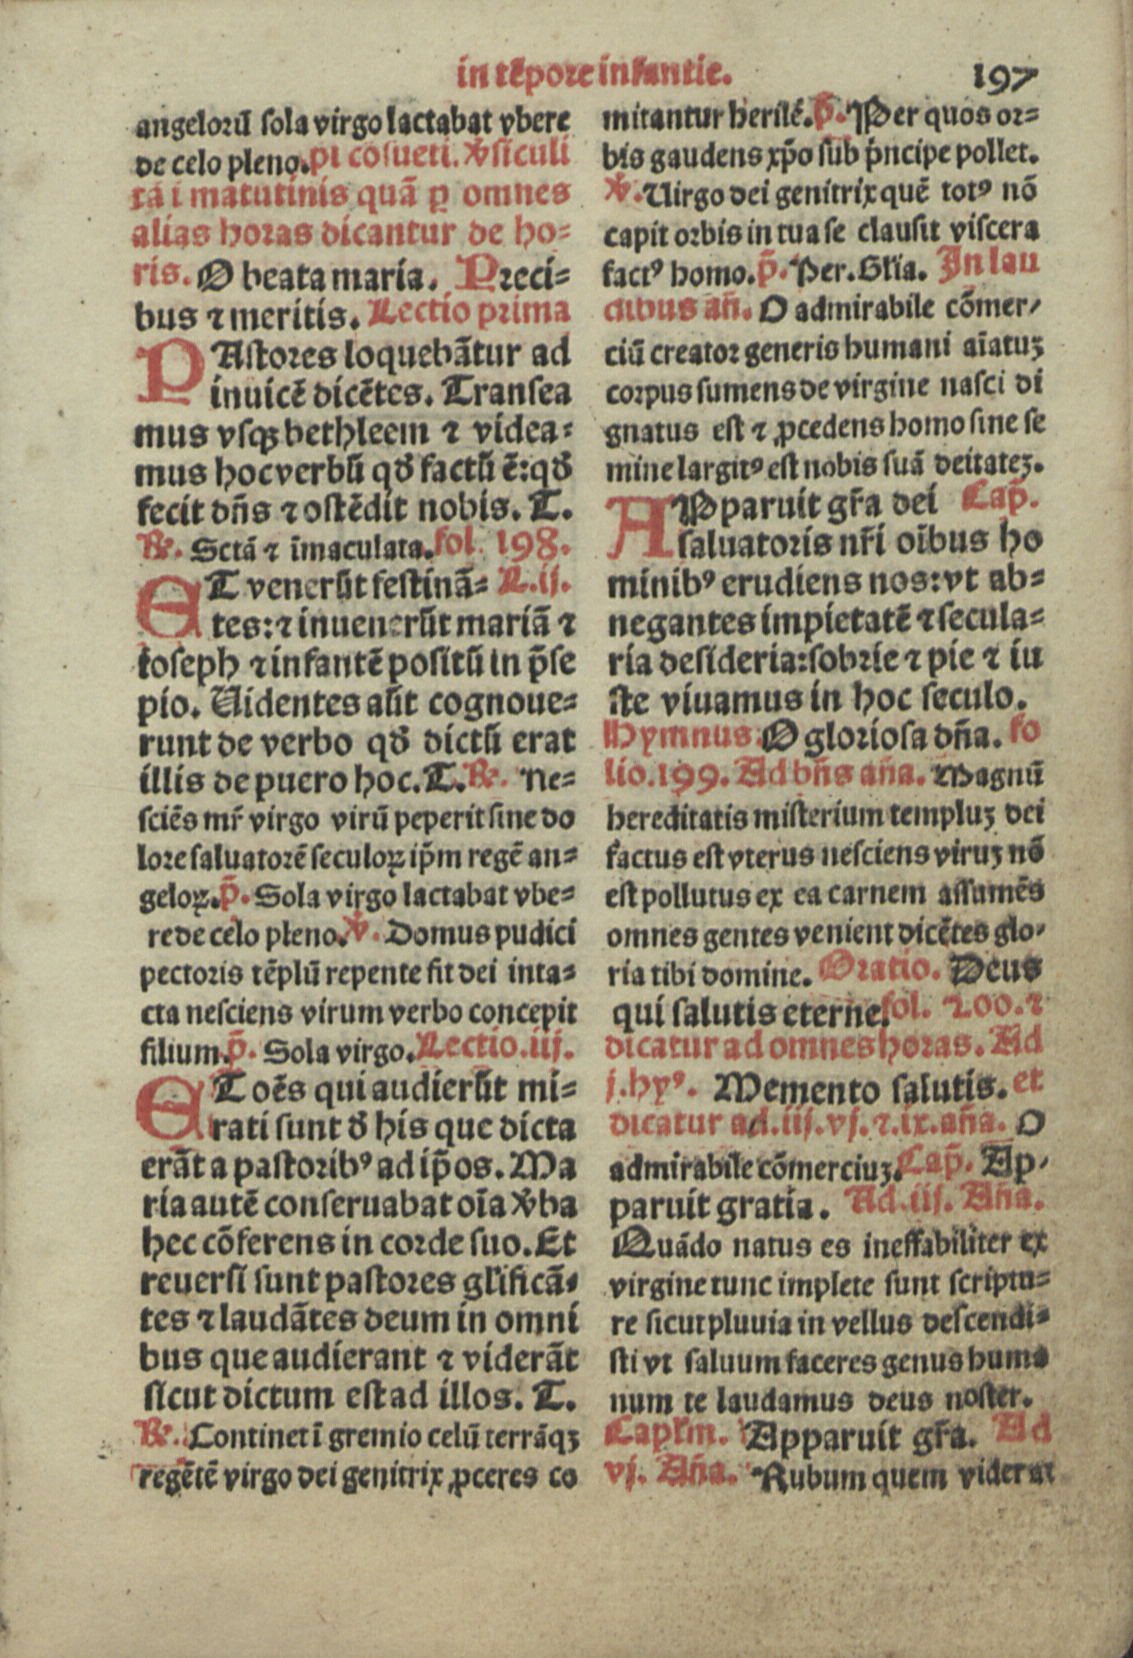 in tẽpore infantie.
197
angelorũ sola virgo lactabat vbere
de celo pleno. p̃i cõsueti. ꝟsiculi
tã ĩ matutinis quã ꝑ omnes
alias horas dicantur de ho⸗
ris. O beata maria. Preci⸗
bus ⁊ meritis. Lectio prima
PAstores loquebãtur ad
inuicẽ dicẽtes. Transea
mus vsqꝫ bethleem ⁊ videa⸗
mus hoc verbũ qď factũ ẽ: qď
fecit dñs ⁊ ostẽdit nobis. T.
℞. Sctã ⁊ ĩmaculata. fol. 198.
ET venerũt festinã⸗ L.ij.
tes: ⁊ inuenerũt mariã ⁊
ioseph ⁊ infantẽ positũ in p̃se
pio. Uidentes aũt cognoue⸗
runt de verbo qď dictũ erat
illis de puero hoc. T. ℞. Ne⸗
sciẽs mr̃ virgo virũ peperit sine do
lore saluatorẽ seculoꝝ ip̃m regẽ an⸗
geloꝝ. p̃. Sola virgo lactabat vbe⸗
re de celo pleno. ꝟ. Domus pudici
pectoris tẽplũ repente fit dei inta⸗
cta nesciens virum verbo concepit
filium. p̃. Sola virgo. Lectio.iij.
ET oẽs qui audierũt mi⸗
rati sunt ď his que dicta
erãt a pastoribꝰ ad ip̃os. Ma
ria autẽ conseruabat oĩa ꝟba
hec cõferens in corde suo. Et
reuersi sunt pastores gl̃ificã⸗
tes ⁊ laudãtes deum in omni
bus que audierant ⁊ viderãt
sicut dictum est ad illos. T.
℞. Continet ĩ gremio celũ terrãqꝫ
regẽtẽ virgo dei genitrix ꝓceres co
mitantur herilẽ. p̃. Per quos or⸗
bis gaudens xp̃o sub p̃ncipe pollet.
ꝟ. Uirgo dei genitrix quẽ totꝰ nõ
capit orbis in tua se clausit viscera
factꝰ homo. p̃. Per. Gl̃ia. In lau
dibus añ. O admirabile cõmer⸗
ciũ creator generis humani aĩatuꝫ
corpus sumens de virgine nasci di
gnatus est ⁊ ꝓcedens homo sine se
mine largitꝰ est nobis suã deitateꝫ.
APparuit gr̃a dei Cap̃.
saluatoris nr̃i oĩbus ho
minibꝰ erudiens nos: vt ab⸗
negantes impietatẽ ⁊ secula⸗
ria desideria: sobrie ⁊ pie ⁊ iu
ste viuamus in hoc seculo.
Hymnus. O gloriosa dña. fo
lio.199. Ad bñs aña. Magnũ
hereditatis misterium templuꝫ dei
factus est vterus nesciens viruꝫ nõ
est pollutus ex ea carnem assumẽs
omnes gentes venient dicẽtes glo⸗
ria tibi domine. Oratio. Deus
qui salutis eterne. fol. 200. ⁊
dicatur ad omnes horas. Ad
j. hyꝰ. Memento salutis. et
dicatur ad.iij.vj.⁊.ix. aña. O
admirabile cõmerciuꝫ. Cap̃. Ap⸗
paruit gratia. Ad.iij. Aña.
Quãdo natus es ineffabiliter ex
virgine tunc implete sunt scriptu⸗
re sicut pluuia in vellus descendi⸗
sti vt saluum faceres genus huma
num te laudamus deus noster.
Capl̃m. Apparuit gr̃a. Ad
vj. Aña. Rubum quem viderat